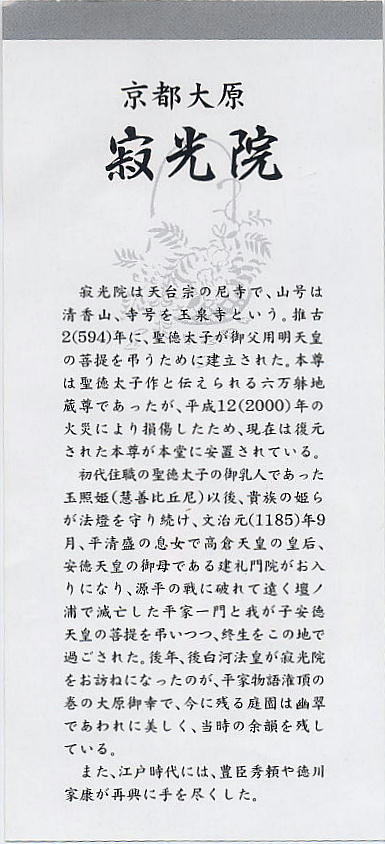 京都大原
寂光院
寂光院は天台宗の尼寺で、山号は
清香山、寺号を玉泉寺という。推古
2(594)年に、聖徳太子が御父用明天皇
の菩提を弔うために建立された。本尊
は聖徳太子作と伝えられる六万躰地
蔵尊であったが、平成12(2000)年の
火災により損傷したため、現在は復元
された本尊が本堂に安置されている。
初代住職の聖徳太子の御乳人であった
玉照姫(慧善比丘尼)以後、貴族の姫ら
が法燈を守り続け、文治元(1185)年9
月、平清盛の息女で高倉天皇の皇后、
安徳天皇の御母である建礼門院がお入
りになり、源平の戦に破れて遠く壇ノ
浦で滅亡した平家一門と我が子安徳
天皇の菩提を弔いつつ、終生をこの地で
過ごされた。後年、後白河法皇が寂光院
をお訪ねになったのが、平家物語潅頂の
巻の大原御幸で、今に残る庭園は幽翠
であわれに美しく、当時の余韻を残し
ている。
また、江戸時代には、豊臣秀頼や徳川
家康が再興に手を尽くした。